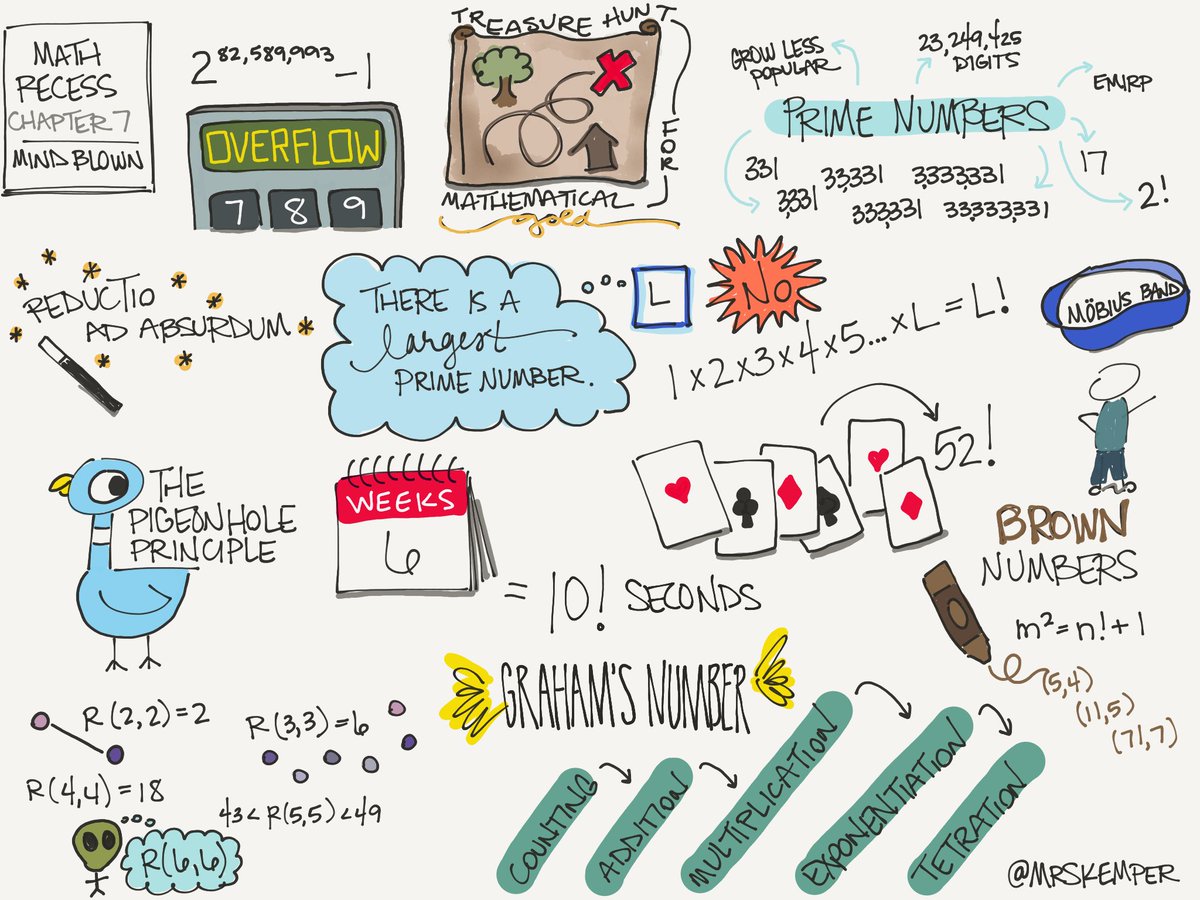 MATH
RECESS
CHAPTER 7
MIND BLOWN
2^82,589,993 - 1
OVERFLOW
7 8 9
TREASURE HUNT
FOR
MATHEMATICAL
gold
GROW LESS
POPULAR
23,249,425
DIGITS
EMIRP
PRIME NUMBERS
331
3,331
33,331
333,331
3,333,331
33,333,331
17
2!
REDUCTIO
AD ABSURDUM
THERE IS A
largest
PRIME NUMBER.
L
NO
1x2x3x4x5...xL=L!
MÖBIUS BAND
THE
PIGEONHOLE
PRINCIPLE
WEEKS
6
= 10! SECONDS
52!
BROWN
NUMBERS
m²=n!+1
(5,4)
(11,5)
(71,7)
GRAHAM'S NUMBER
R(2,2)=2
R(3,3)=6
R(4,4)=18
43<R(5,5)<49
R(6,6)
COUNTING
ADDITION
MULTIPLICATION
EXPONENTIATION
TETRATION
@MRSKEMPER